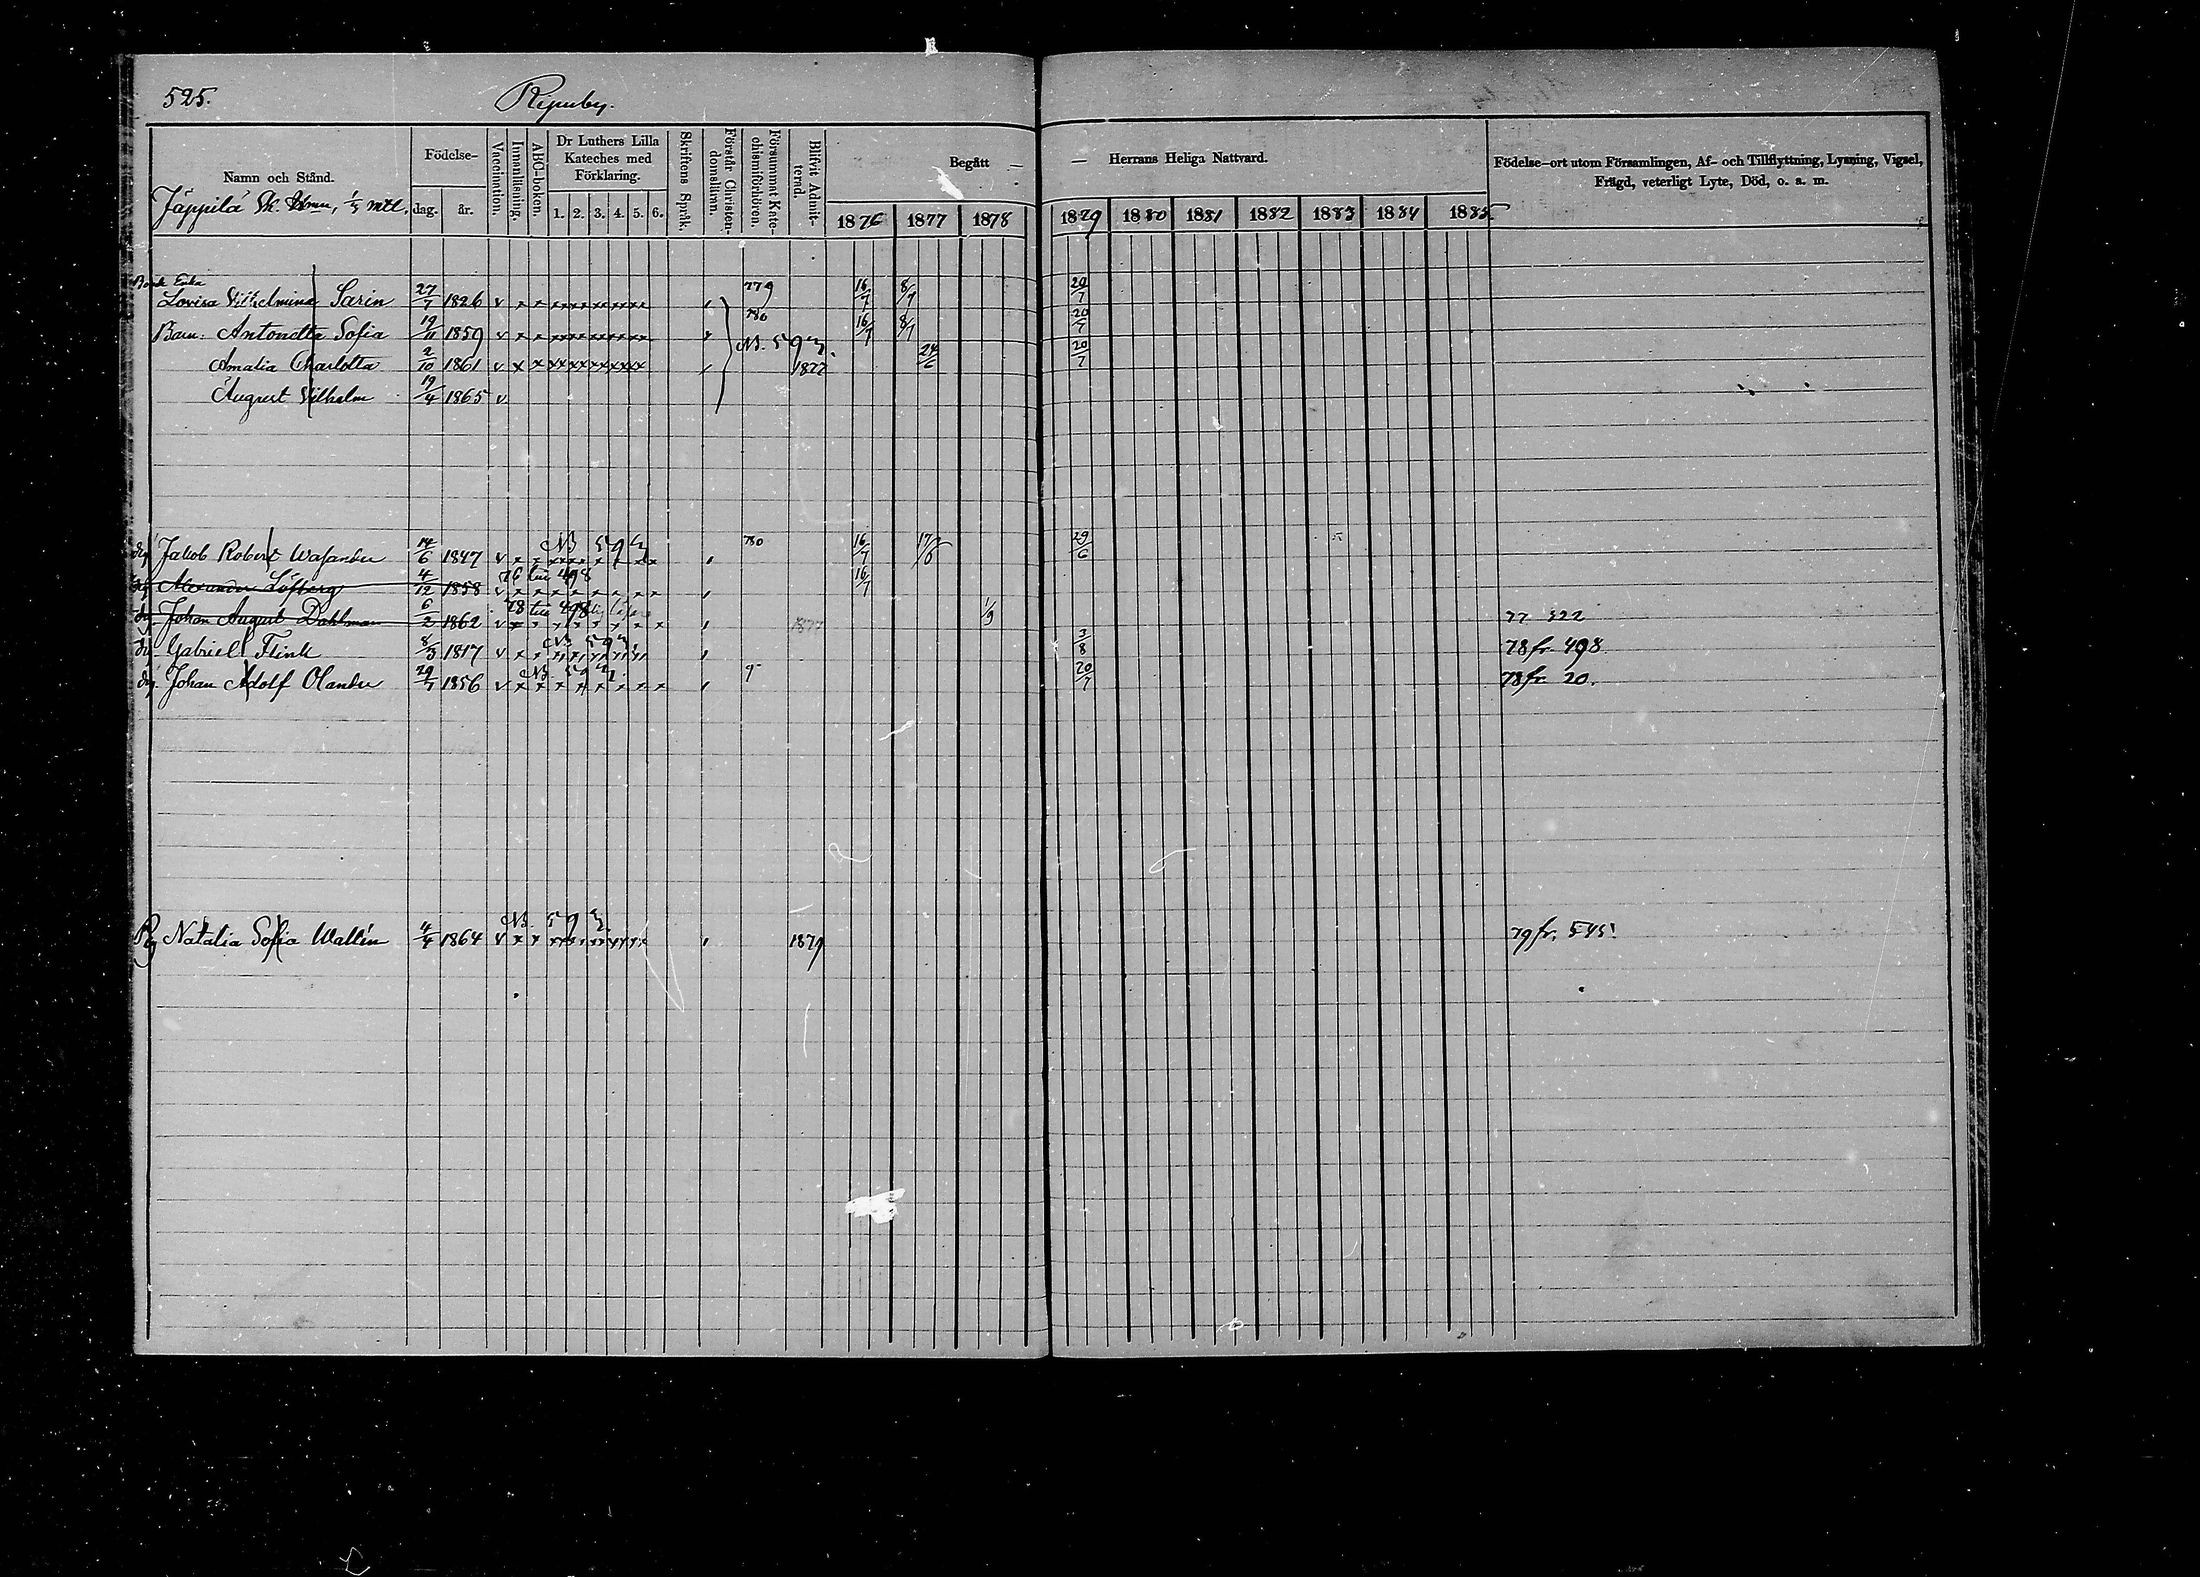 525. Ripuby.
Namn och Stånd. Födelse- dag. år. Vaccination. Innanläsning. ABC-boken. Dr Luthers Lilla Kateches med Förklaring. 1. 2. 3. 4. 5. 6. Skriftens Språk. Förstår Christendomslären. Försummat Katechismiförhören. Blifvit Admitterad. Begått — — Herrans Heliga Nattvard. Födelse-ort utom Församlingen, Af- och Tillflyttning, Lysning, Vigsel, Frägd, veterligt Lyte, Död, o. a. m.
Jäppilä Sk. 1/3 mtl.
1876 1877 1878 1879 1880 1881 1882 1883 1884 1885
Enka
Lovisa Vilhelmina Sarin 27/7 1826 v 779 16/7 8/7 20/7
Barn: Antonetta Sofia 19/11 1859 v 780 16/7 8/7 20/7
N. 593.
Amalia Charlotta 2/10 1861 v 1877 24/6 20/7
August Vilhelm 19/4 1865 v
drg Jakob Robert Wasander 14/6 1847 v N 593 780 16/7 17/6 29/6
Alexander Löfberg 4/12 1858 v 76 till 498 16/7
drg Johan August Dahlman 6/2 1862 v 78 till 498 1877 1/9 77 322
drg Gabriel Flink 8/3 1817 v N 593 3/8 78 fr. 498
drg. Johan Adolf Olander 29/7 1856 v N. 593. 20/7 78 fr. 20.
Pig Natalia Sofia Wallén 4/4 1864 v N. 593. 1879 79 fr. 545